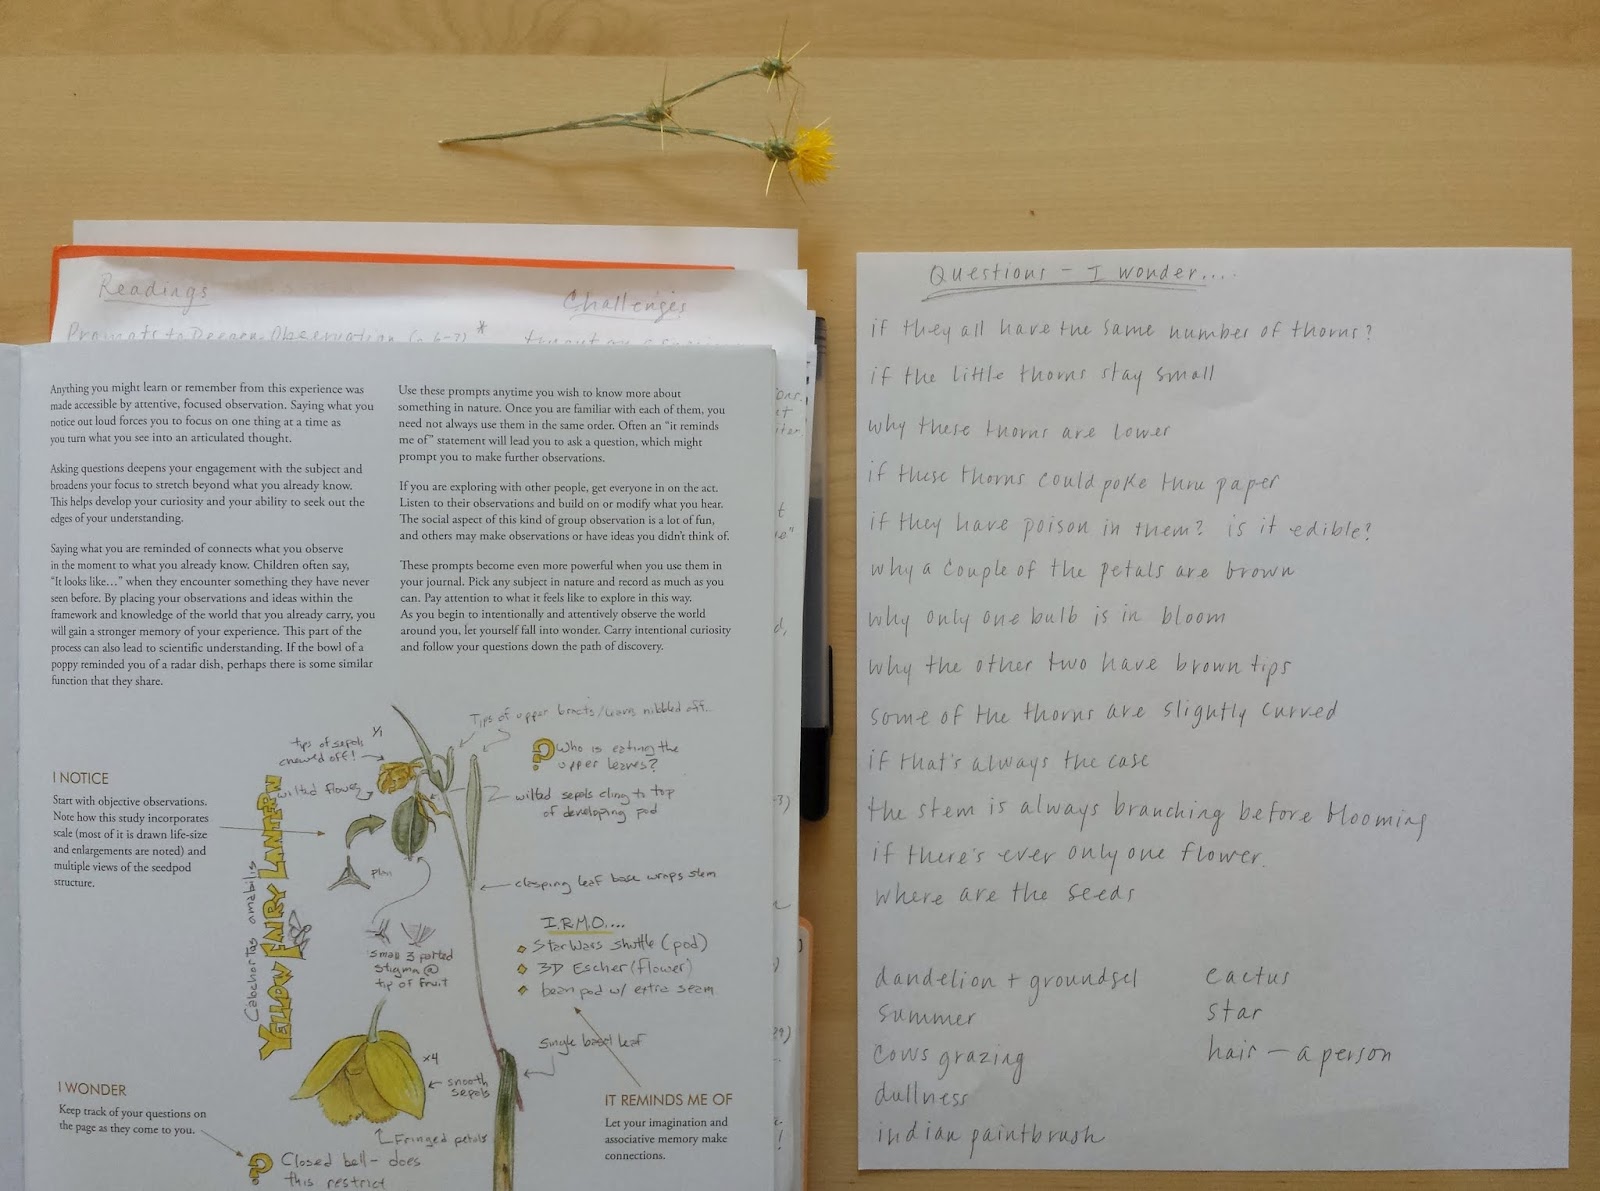 Readings
Challenges
Prompts to Deepen Observation (p. 6-7) *
Anything you might learn or remember from this experience was
made accessible by attentive, focused observation. Saying what you
notice out loud forces you to focus on one thing at a time as
you turn what you see into an articulated thought.
Asking questions deepens your engagement with the subject and
broadens your focus to stretch beyond what you already know.
This helps develop your curiosity and your ability to seek out the
edges of your understanding.
Saying what you are reminded of connects what you observe
in the moment to what you already know. Children often say,
“It looks like…” when they encounter something they have never
seen before. By placing your observations and ideas within the
framework and knowledge of the world that you already carry, you
will gain a stronger memory of your experience. This part of the
process can also lead to scientific understanding. If the bowl of a
poppy reminded you of a radar dish, perhaps there is some similar
function that they share.
Use these prompts anytime you wish to know more about
something in nature. Once you are familiar with each of them, you
need not always use them in the same order. Often an “it reminds
me of” statement will lead you to ask a question, which might
prompt you to make further observations.
If you are exploring with other people, get everyone in on the act.
Listen to their observations and build on or modify what you hear.
The social aspect of this kind of group observation is a lot of fun,
and others may make observations or have ideas you didn’t think of.
These prompts become even more powerful when you use them in
your journal. Pick any subject in nature and record as much as you
can. Pay attention to what it feels like to explore in this way.
As you begin to intentionally and attentively observe the world
around you, let yourself fall into wonder. Carry intentional curiosity
and follow your questions down the path of discovery.
I NOTICE
Start with objective observations.
Note how this study incorporates
scale (most of it is drawn life-size
and enlargements are noted) and
multiple views of the seedpod
structure.
I WONDER
Keep track of your questions on
the page as they come to you.
Calochortus amabilis
YELLOW FAIRY LANTERN
tips of sepals
chewed off!
1/1
wilted flower
Tips of upper bracts/leaves nibbled off...
? Who is eating the
upper leaves?
wilted sepals cling to top
of developing pod
plan
clasping leaf base wraps stem
small 3 parted
stigma @
tip of fruit
I.R.M.O....
Star Wars shuttle (pod)
3D Escher (flower)
bean pod w/ extra seam
single basal leaf
x4
smooth
sepals
Fringed petals
? Closed bell - does
this restrict
IT REMINDS ME OF
Let your imagination and
associative memory make
connections.
Questions - I wonder....
if they all have the same number of thorns?
if the little thorns stay small
why these thorns are lower
if these thorns could poke thru paper
if they have poison in them? is it edible?
why a couple of the petals are brown
why only one bulb is in bloom
why the other two have brown tips
some of the thorns are slightly curved
if that's always the case
the stem is always branching before blooming
if there's ever only one flower.
where are the seeds
dandelion + groundsel
summer
cows grazing
dullness
indian paintbrush
cactus
star
hair - a person